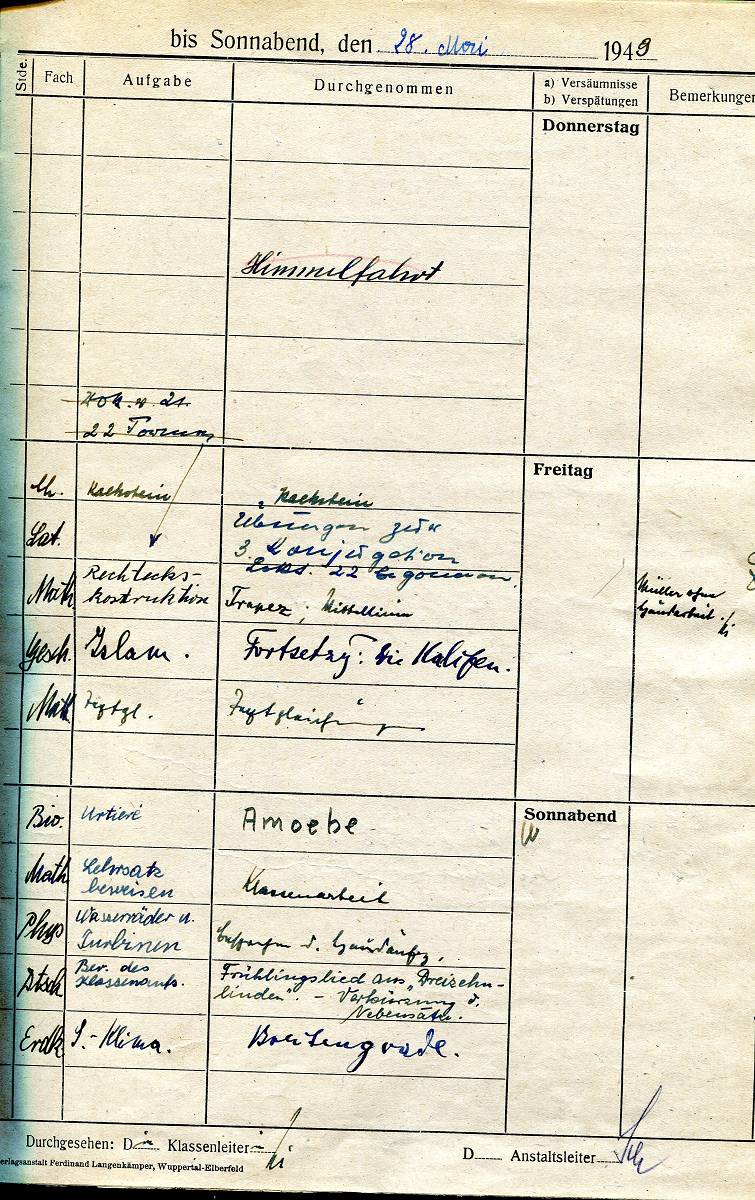 bis Sonnabend, den 28. Mai 1949
Stde. Fach Aufgabe Durchgenommen a) Versäumnisse b) Verspätungen Bemerkungen
Donnerstag
Himmelfahrt
22
Freitag
Ch. Kalkstein Kalkstein
Lat. Übungen zur
3. Konjugation
Lekt. 22
Math Rechtecks-
kostruktion Trapez, Mittellinie
Müller ohne
Hausarbeit.
Gesch. Islam. Fortsetzg: Die Kalifen.
Math
Sonnabend
Bio. Urtiere Amoebe
Math Lehrsatz
beweisen Klassenarbeit
Phys Wasserräder u.
Turbinen d. Hausaufg.
Dtsch Ber. des
Klassenaufs. Frühlingslied aus „Dreizehn-
linden“. – Verkürzung d.
Nebensätze.
Erdk S.-Klima. Breitengrade.
Durchgesehen: Die Klassenleiterin
D Anstaltsleiter
Verlagsanstalt Ferdinand Langenkämper, Wuppertal-Elberfeld